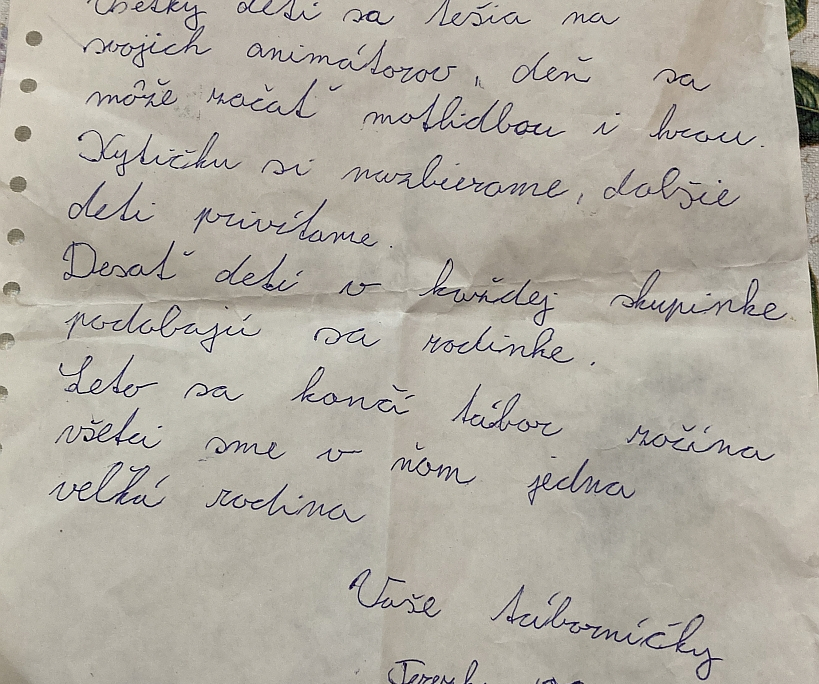 Všetky deti sa tešia na
svojich animátorov, deň sa
môže začať motlidbou i hrou.
Kytičku si nazbierame, dalšie
deti privítame.
Desať detí v každej skupinke
podobajú sa rodinke.
Leto sa končí tábor začína
všetci sme v ňom jedna
veľká rodina
Vaše táborníčky